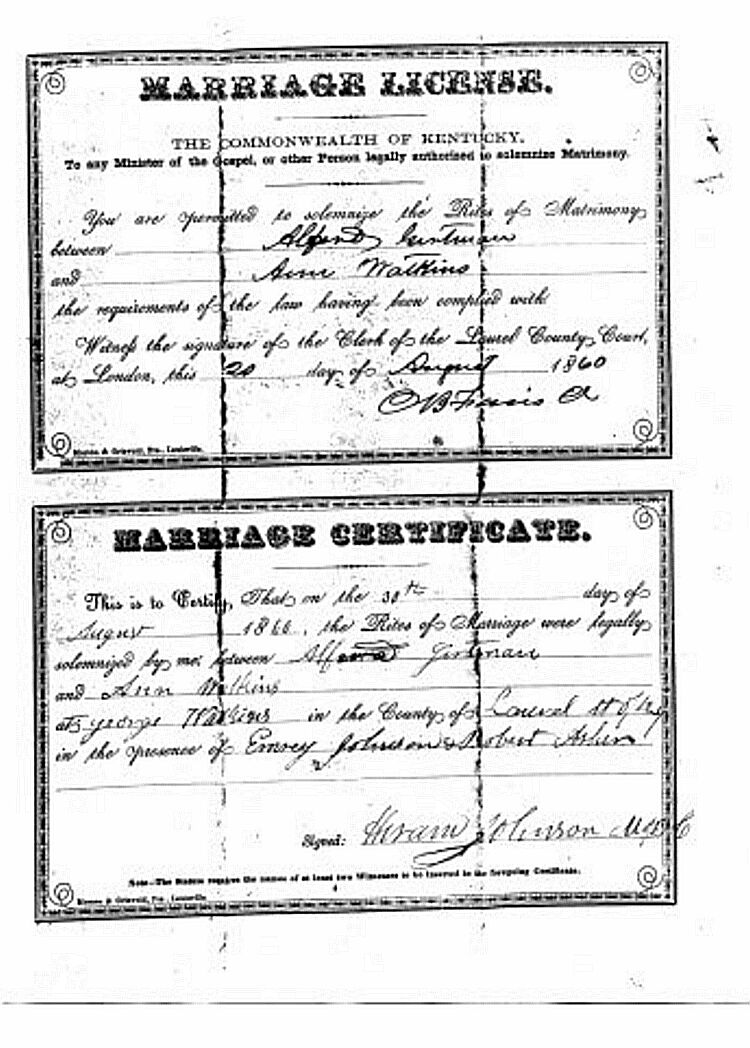 MARRIAGE LICENSE.
THE COMMONWEALTH OF KENTUCKY.
To any Minister of the Gospel, or other Person legally authorized to solemnize Matrimony.
You are permitted to solemnize the Rites of Matrimony
between
and Ann Watkins
the requirements of the law having been complied with
Witness the signature of the Clerk of the Laurel County Court,
at London, this 20 day of August 1860
MARRIAGE CERTIFICATE.
This is to Certify, That on the 30th day of
August 1860, the Rites of Marriage were legally
solemnized by me between
and Ann Watkins
at george Watkins in the County of Laurel
in the presence of Johnson & Robert
Signed: Hiram Johnson
Note.—The Statute requires the names of at least two Witnesses to be inserted in the foregoing Certificate.